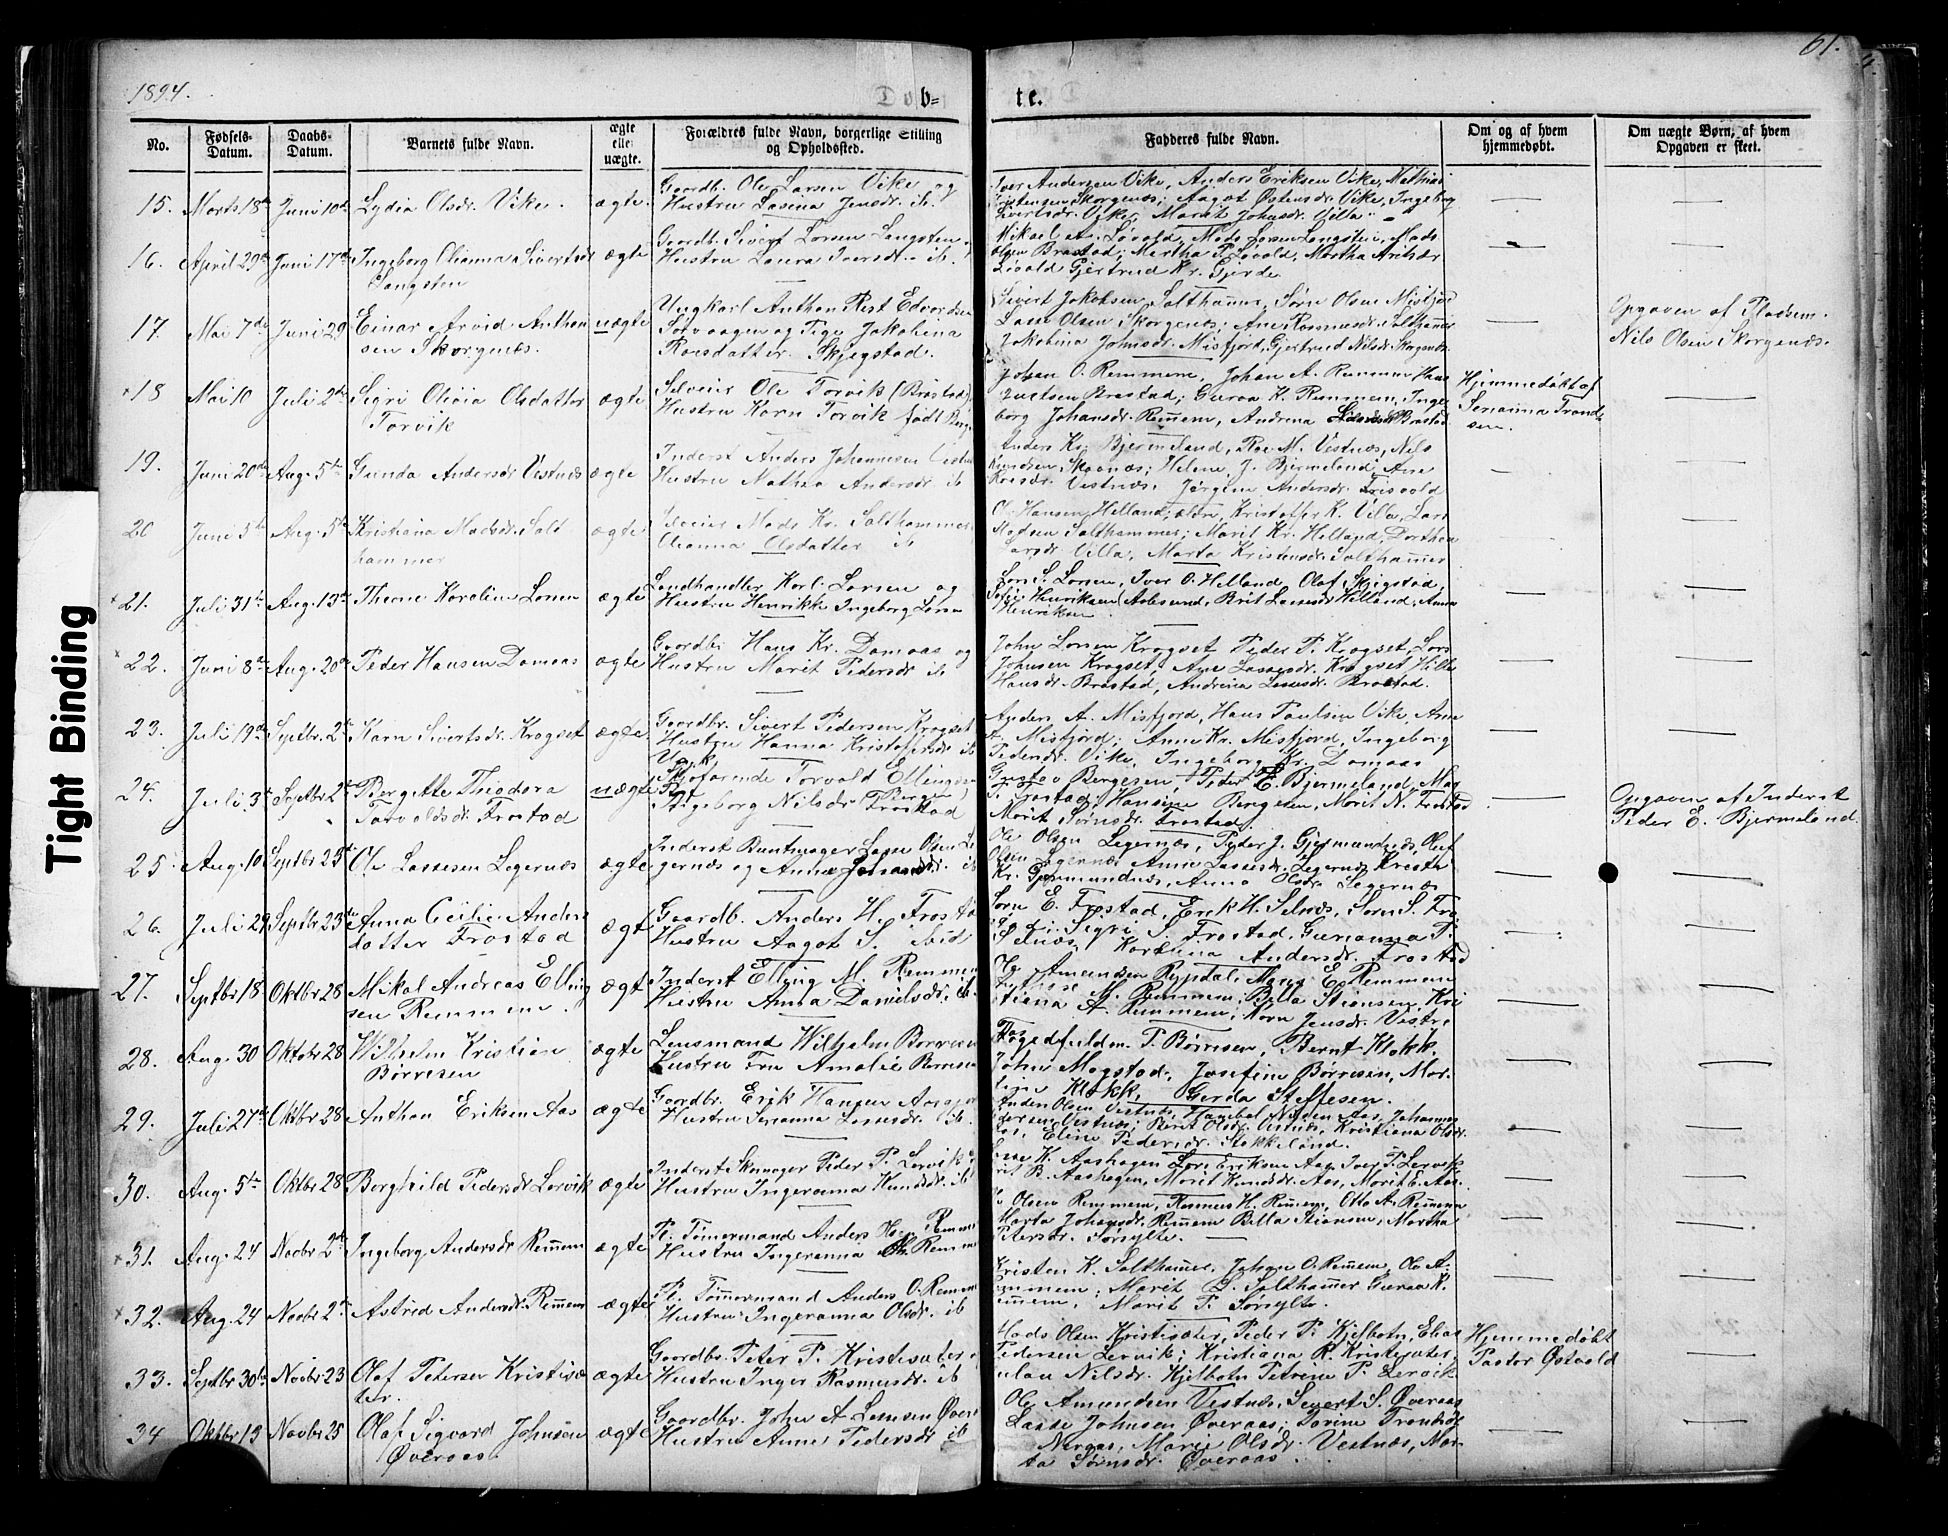 1894.
Døb-
te.
61.
No.
Fødsels-
Datum.
Daabs-
Datum.
Barnets fulde Navn.
ægte
eller
uægte.
Forældres fulde Navn, borgerlige Stilling
og Opholdssted.
Fadderes fulde Navn.
Om og af hvem
hjemmedøbt.
Om uægte Børn, af hvem
Opgaven er skeet.
15. Marts 18de Juni 10de Lydia Olsdr. Vike. ægte.
Gaardb. Ole Larsen Vike og
Hustru Lasina Jensdr. ib.
Iver Andersen Vike, Anders Eriksen Vike, Mathias
Kristensen Skorgenæs; Aagot Østensdr. Vike, Ingeborg
Sivertsdr. Vike, Marit Johnsdr. Villa
16. April 29de Juni 17de Ingeborg Olianna Sivertsdr
Langsten
ægte
Gaardb. Sivert Larsen Langsten
Hustru Laura Iversdr. ib.
Mikael A. Løvold, Mads Larsen Langsten, Mads
Olsen Brastad; Martha P. Løvold, Martha
Løvold Gjertrud Kr. Gjerde
17. Mai 7de Juni 29 Einar Arvid Anthon
sen Skorgenes.
uægte
Ungkarl Anthon Rist Edvardsen
Sølvaagen og Pige Jakobina
Roaldatter Skjegstad.
Sivert Jakobsen Salthammer, Sørn Olsen Misfjord
Lasse Olsen Skorgenæs; Ane Rasmusdr. Salthammer
Jakobina Johnsdr. Misfjord, Gjertrud Nilsdr. Skorgenæs
Opgaven af Pladsm.
Nils Olsen Skorgenæs.
+18 Mai 10 Juli 2den Sigri Olivia Olsdatter
Torvik
ægte
Selveier Ole Torvik (Brastad)
Hustru Karn Torvik født Berg
Johan O. Remmem, Johan A. Remmem Hans
Brastad; Guroa K. Remmem, Inge
borg Johansdr. Remem, Andrina Brastad
Hjemmedøbt af
Serianna Trond-
sen.
19. Juni 20de Aug. 5te Gunda Andersdr Vestnes ægte
Inderst Anders Johannesen Vestnes
Hustru Mathea Andersdr. ib
Anders Kr. Bjermeland, Roe M. Vestnæs, Nils
Knudsen Skaanæs; Helene J. Bjermeland, Ane
Vestnæs, Jørgine Andersdr. Trisvold
20 Juni 5te Aug. 5te Kristiana Madsdr. Salt
hammer
ægte
Selveier Mads Kr. Salthammer
Olianna Olsdatter ib
O. Hansen Helland, ældre, Kristoffer K. Villa, Lars
Madsen Salthammer; Marit Kr. Helland, Dorthea
Larsdr. Villa, Marta Kristensdr. Salthamer
+21. Juli 31te Aug. 13de Theone Karoline Larsen ægte
Landhandler Karl. Larsen og
Hustru Henrikke Ingeborg Larsen
Lars S. Larsen, Iver O. Helland, Olaf Skjegstad,
Sofie Henriksen (Aalesund, Brit Lassesdr Helland, Anna
Henriksen
+22. Juni 8de Aug. 20de Peder Hansen Damaas ægte
Gaardbr Hans Kr. Damaas og
Hustru Marit Pedersdr ib
John Larsen Kragset Peder P. Kragset, Lars
Johnsen Kragset, Ane Lassesdr. Kragset Hilla
Hansdr. Brastad, Andrina Lassesdr. Brastad.
23. Juli 19de Septbr. 2den Karn Sivertsdr. Kragset ægte
Gaardbr. Sivert Pedersen Kragset
Hustru Hanna Kristoffersdr ib
Anders A. Misfjord, Hans Paulsen Vike, Ane
A. Misfjord; Anne Kr. Misfjord, Ingeborg
Pedersdr. Vike, Ingeborg Kr. Damaas
24. Juli 3de Septbr 2den Bergette Theodora
Torvaldsdr. Frostad
uægte
Ungk.
Sjøfarende Torvald Ellingsen
Ingeborg Nilsdr. Frostad
Gustav Bergesen, Peder E. Bjermeland, Mar
Frostad, Hansine Bergesen, Marit N. Frostad
Marit Sørnsdr. Frostad.
Opgaven af Inderst
Peder E. Bjermeland.
25. Aug. 10 Septbr 23de Ole Lassesen Legernæs ægte
Inderst Buntmager Lasse Olsen Le
gernæs og Anna ib
Ole Olsen Legernæs, Peder J. Gjermundnæs, Oluf
Olsen Legernæs Anne Lassesdr. Legernæs Kresta
Kr. Gjermundnæs, Anna Olsdr. Legernæs
26. Juli 29 Septbr 23de Anna Cecilie Anders
datter Frostad
ægte
Gaardb. Anders H. Frostad
Hustru Aagot S. ibid
Sørn E. Frostad, Erik H. Selnæs, Sørn S. Fro-
Sigri S. Frostad, Gurianna P.
Selnæs, Karolina Andersdr. Frostad
27. Septbr 18 Oktbr 28 Mikal Andreas Elling
sen Remmem.
ægte
Inderst Elling M. Remmem
Hustru Anna Danielsdr. ib.
Ole Amundsen Rypdal, E. Remmem
Lasse M. Remmem; Billa Stiansen, Kri
stiana A. Remmem, Karn Jensdr. Vestre
28. Aug. 30 Oktobr 28 Wilhelm Kristian
Børresen
ægte
Lensmand Wilhelm Børresen
Hustru Fru Amalie Børresen
Fogedfuldm. P. Børresen, Bernt Klokk,
John Mogstad, Josefine Børresen, Mar-
Klokk, Gerda Steffesen.
29. Juli 27de Oktbr 28 Anthon Eriksen Aas ægte
Gaardbr. Erik Hansen Aas og
Hustru Serianna Lassesdr. ib.
Anden Olsen Vestnæs, Hanibal Nilsen Aas, Johannes
Pedersen Vestnæs; Berit Olsdr. Vestnæs, Kristiana Olsdr.
Aas, Eline Pedersdr. Stokkeland.
30. Aug. 5te Oktbr 28 Borghild Pedersdr Lervik ægte
Inderst Skomager Peder P. Lervik
Hustru Ingeranna Knudsdr. ib
K. Aashagen Lars Eriksen Aas, Iver P. Lervik
Brit B. Aashagen, Marit Knudsdr. Aas, Marit E. Aas.
+31. Aug. 24 Novbr 2den Ingeborg Andersdr Remem ægte
P. Tømermand Anders Olsen Remmem
Hustru Ingeranna Ol. Remmem
Ole Olsen Remmem, Rasmus H. Remem, Otto A. Remem
Marta Johansdr. Remem Billa Stiansen, Martha
Petersdr. Sørsylte.
+32. Aug. 24 Novbr 2den Astrid Andersdr. Remem ægte
P. Tømermand Anders O. Remem
Hustru Ingeranna Olsdr. ib
Kristen K. Salthamer, Johan O. Remem, Ole A.
Remmem; Marit L. Salthamer Guroa K.
Remmem, Marit P. Sørsylte.
33. Septbr 30te Novbr 23 Olaf Petersen Kristisæ
ter.
ægte
Gaardbr. Peter P. Kristisæter
Hustru Inger Rasmusdr. ib
Mads Olsen Kristisæter, Peder P. Kjelbotn, Elias
Pedersen Lervik; Kristiana R. Kristisæter,
Nilsdr. Kjelbotn Petrine P. Lervik
Hjemmedøbt
Pastor Østvold
34 Oktbr 13 Novbr 25 Olaf Sigvard Johnsen
Øveraas.
ægte
Gaardbr. John A. Lassesen Øveraas
Hustru Anne Pedersdr ib
Ole Amundsen Vestnæs, Sivert S. Øveraas
Lasse Johnsen Øveraas; Torine Trondsdr
Nergas, Marie Olsdr. Vestnæs, Mar-
ta Sørnsdr. Øveraas.
Tight Binding